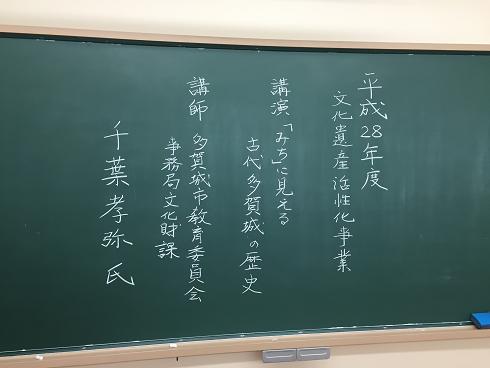 平成28年度
文化遺産活性化事業
講演「みち」に見える
古代多賀城の歴史
講師 多賀城市教育委員会
事務局文化財課
千葉孝弥氏